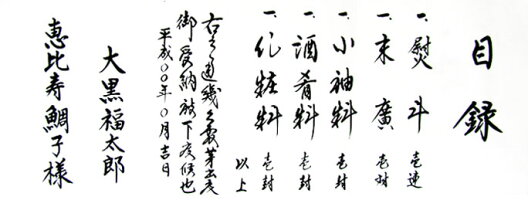 目録
一、熨斗 壱連
一、末廣 壱対
一、小袖料 壱封
一、酒肴料 壱封
一、化粧料 壱封
以上
右之通幾久敷芽出度
御受納被下度候也
平成〇〇年〇月吉日
大黒福太郎
恵比寿鯛子様